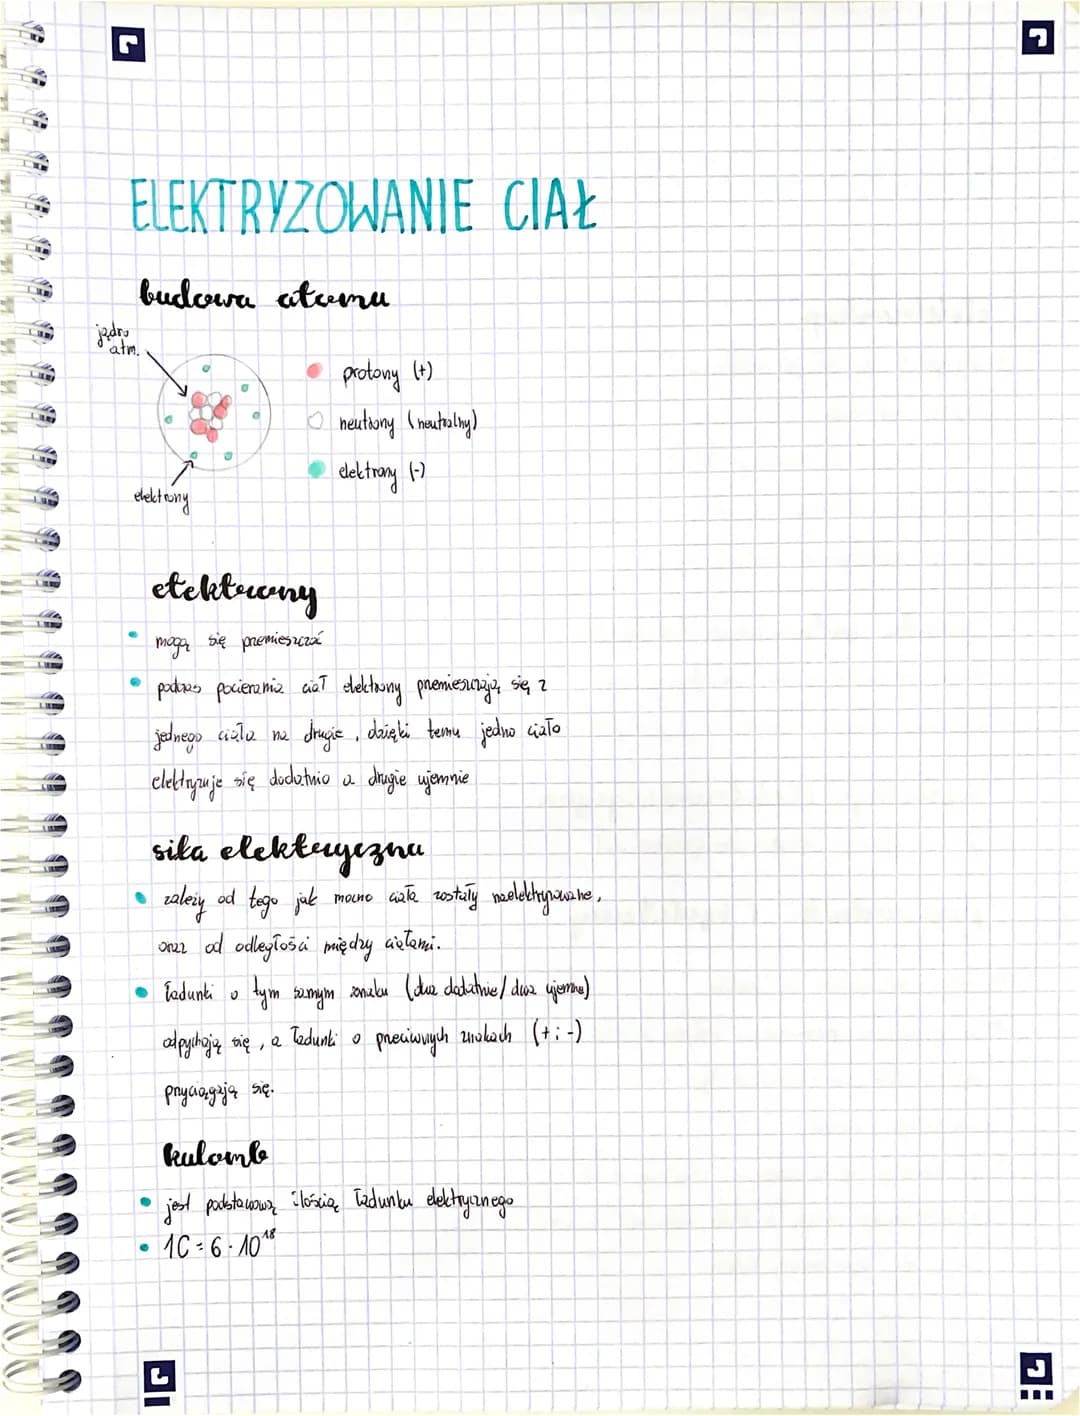 ELEKTRYZOWANIE CIAŁ
budowa atomu
jądro
atm.
protony (+)
neutrony (neutralny)
elektrony (-)
elektrony
elektrony
mogą się przemieszczać
podczas pocierania ciał elektrony przemieszczają się z
jednego ciała na drugie, dzięki temu jedno ciało
elektryzuje się dodatnio a drugie ujemnie
siła elektryczna
zależy od tego jak mocno ciała zostały naelektryzowane,
oraz od odległości między ciałami.
ładunki o tym samym znaku (dwa dodatnie/dwa ujemne)
odpychają się, a ładunki o przeciwnych znakach (+ i -)
przyciągają się.
kulomb
jest podstawową ilością ładunku elektrycznego
1C = 6 · 10¹⁸